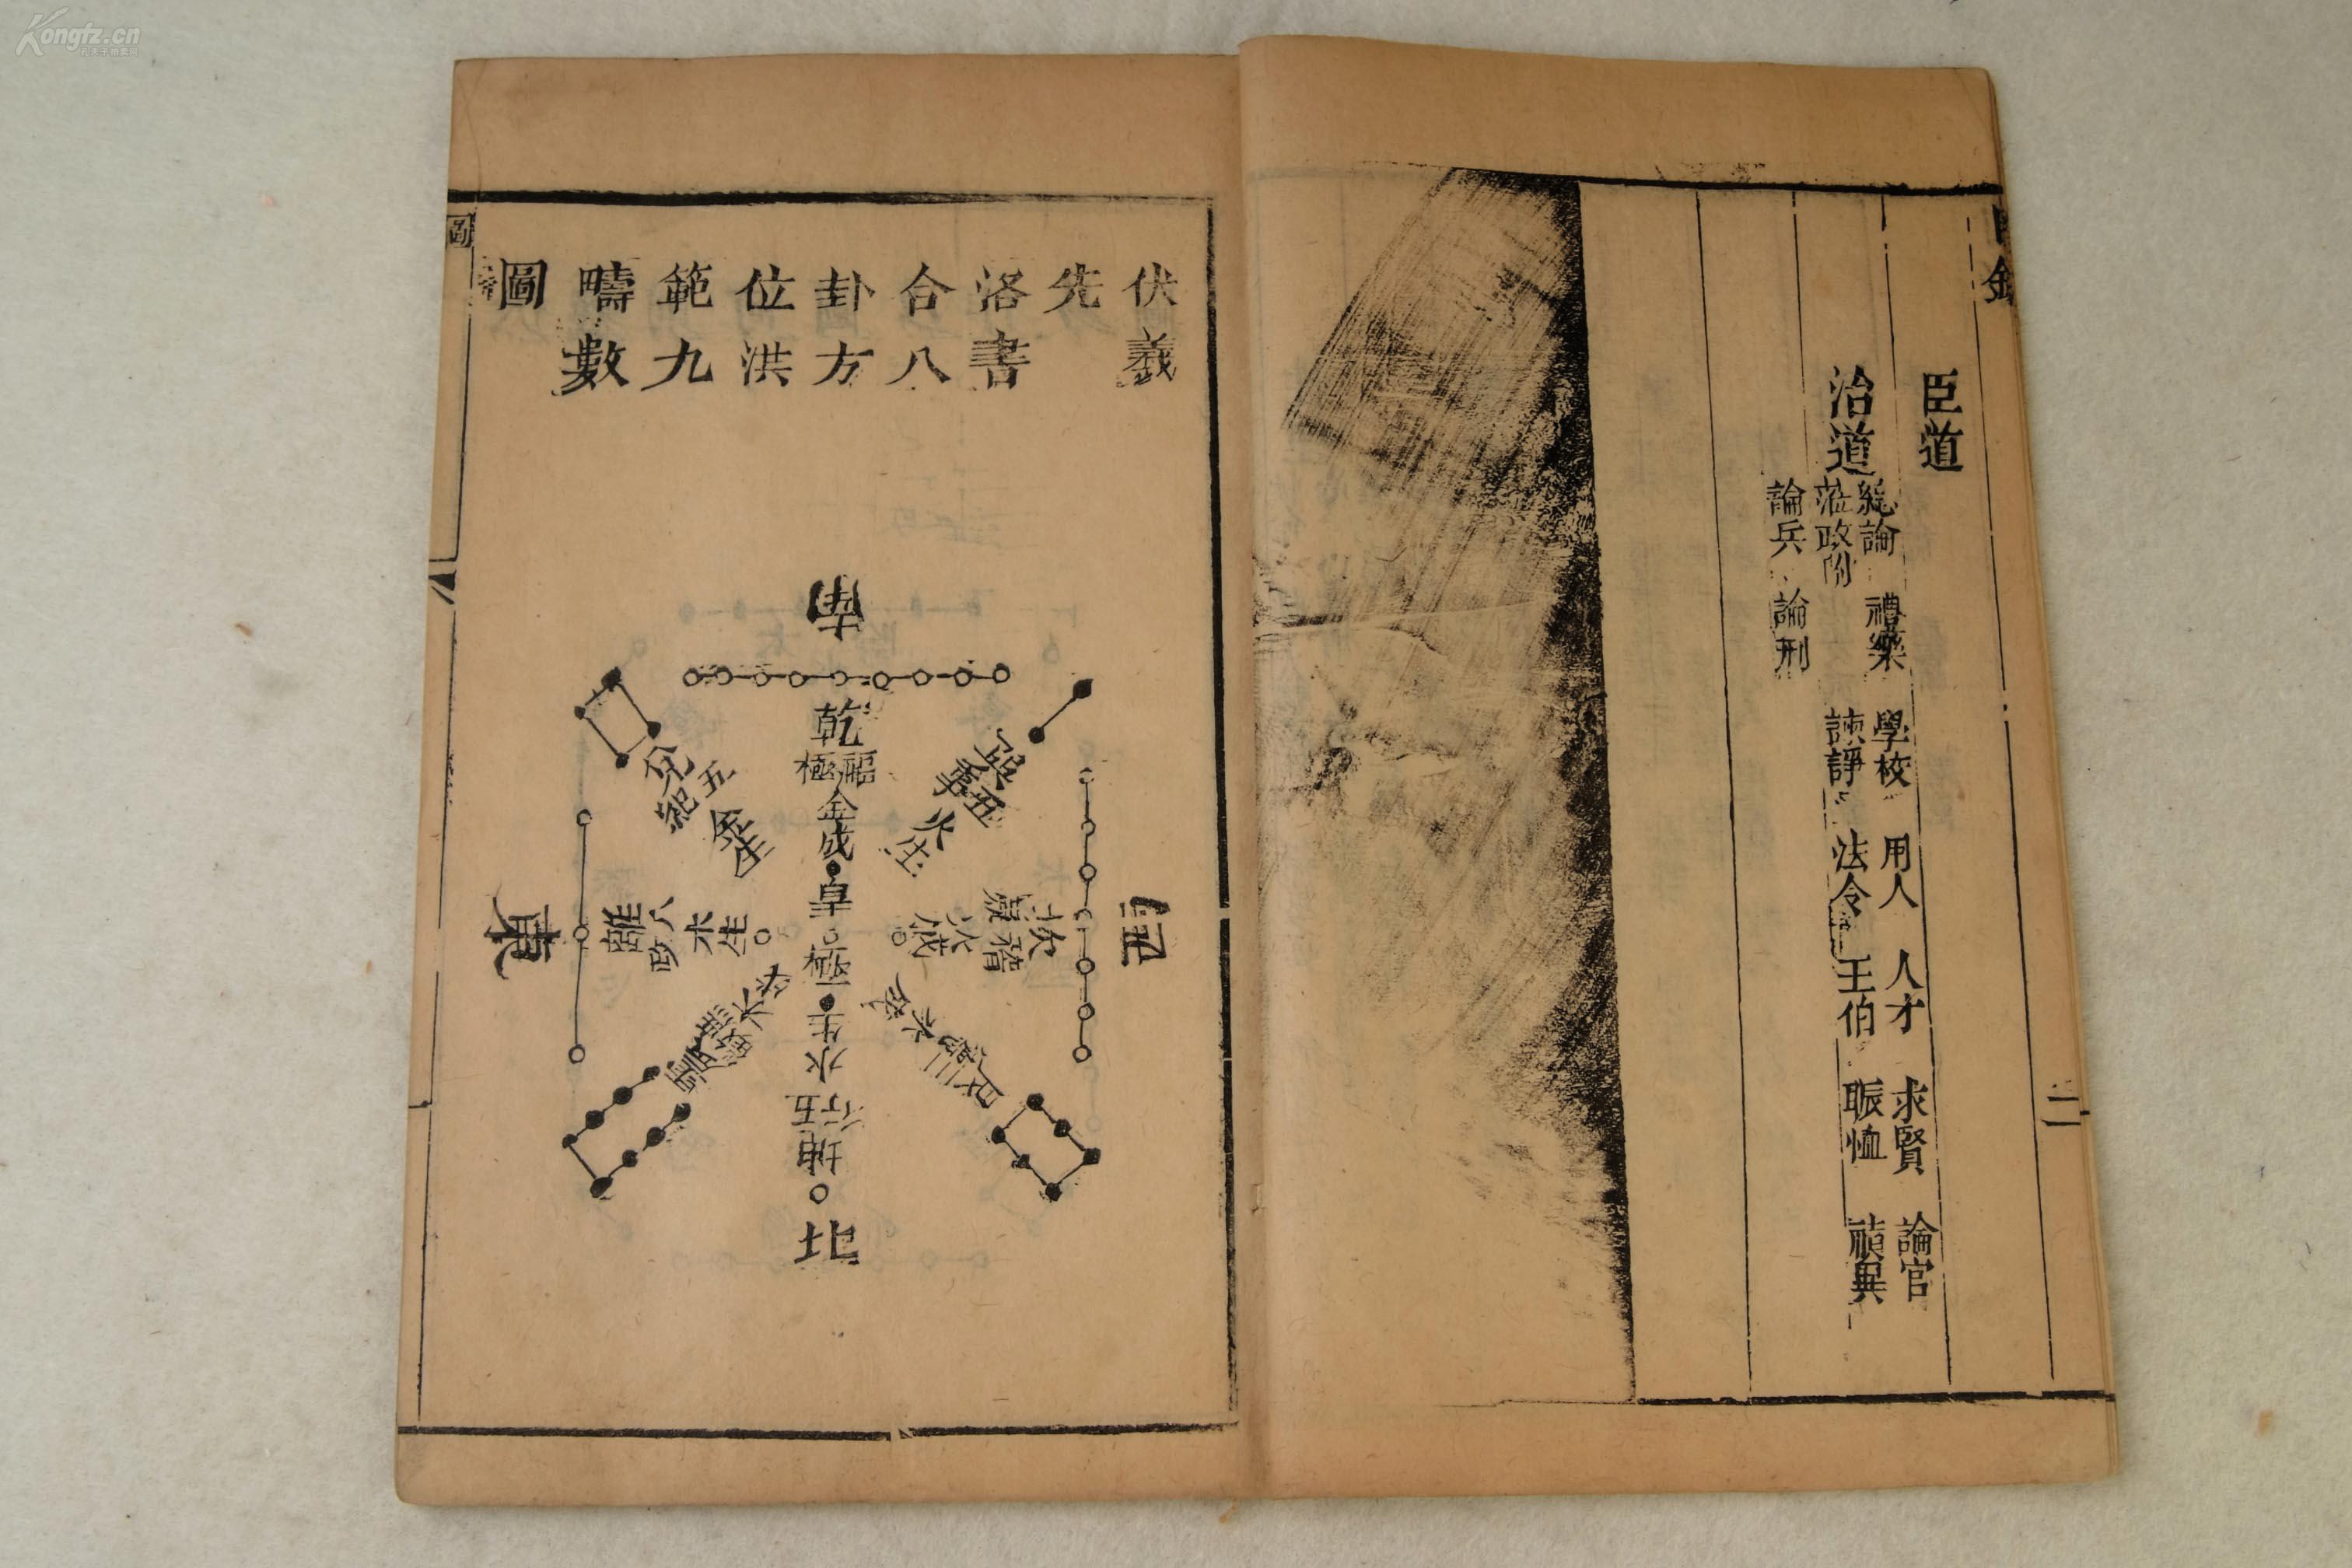 Kongfz.cn
目錄
臣道
治道
總論 禮樂 學校 用人 人才 求賢 論官
蒞政附 諫諍 法令 王伯 賑恤 禎異
論兵 論刑
二
伏羲
先
洛書
合八
卦方
位洪
範九
疇數
圖
南
乾
福極
金成
皇極
水生
五行
坤
北
東
離
八政
木生
西
坎
稽疑
火成
兌
五紀
金生
巽
五事
火生
艮
三德
水成
木成
圖